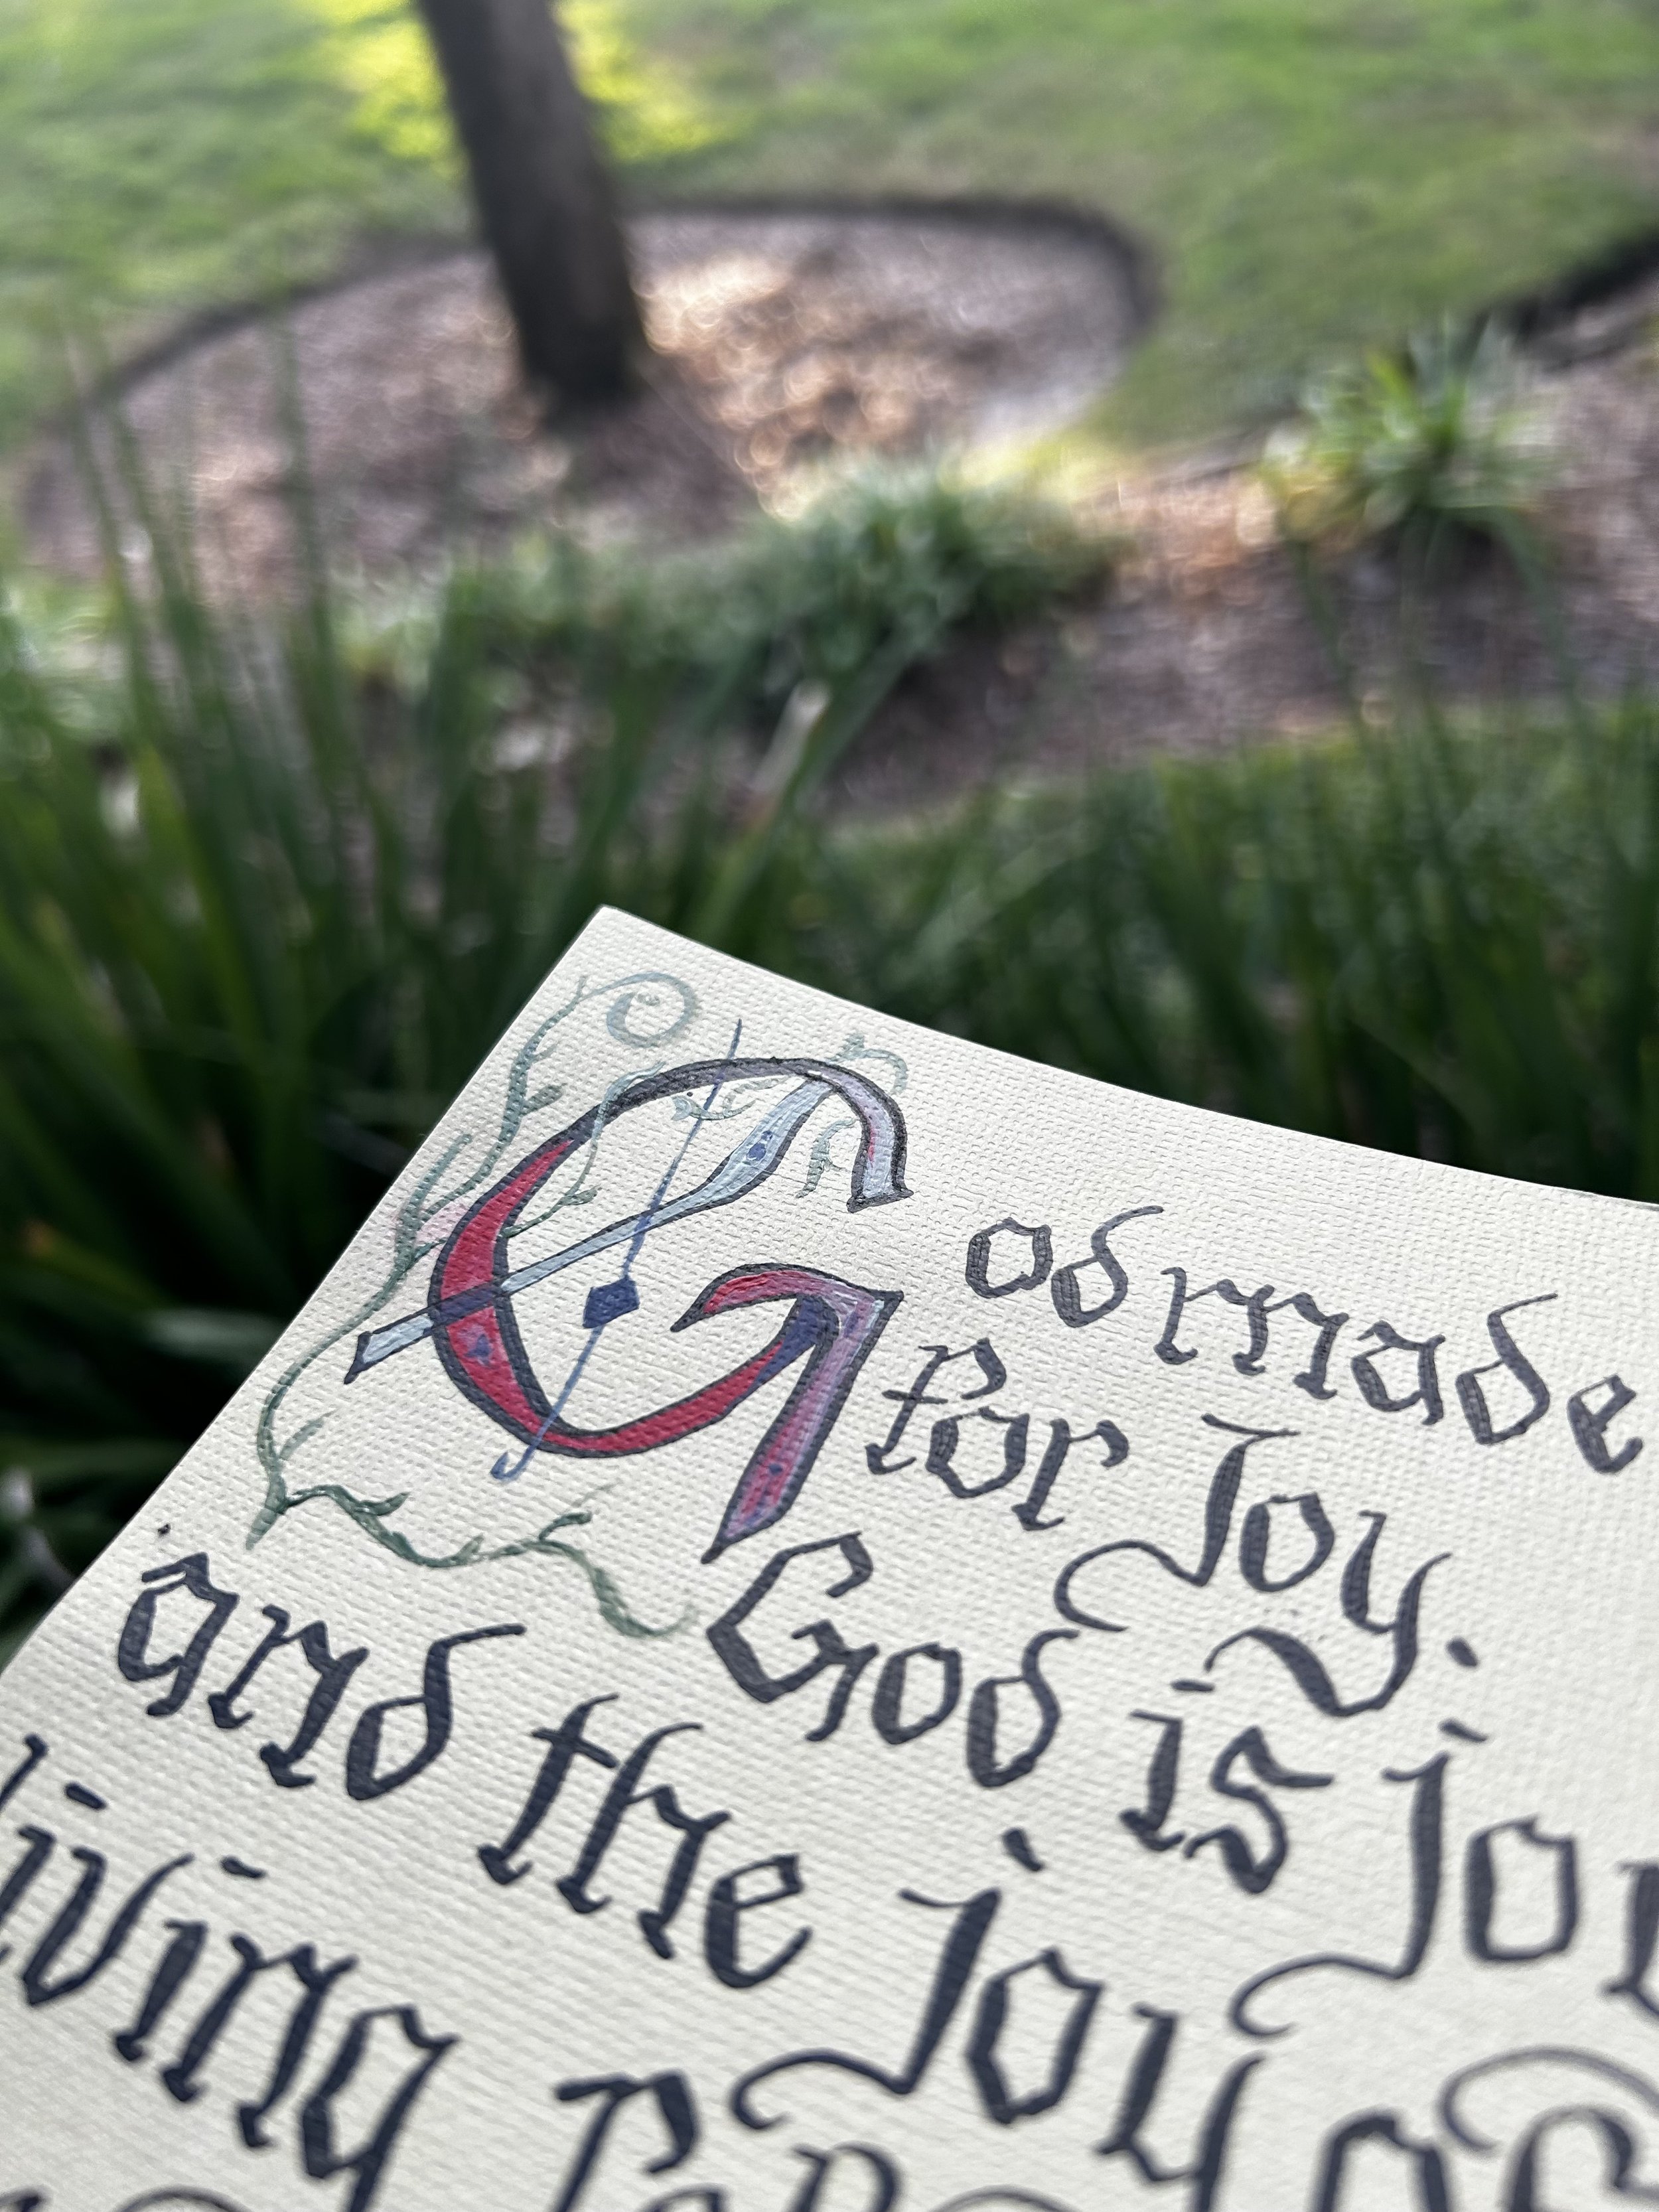 God made
for Joy.
God is Joy
and the Joy of
living